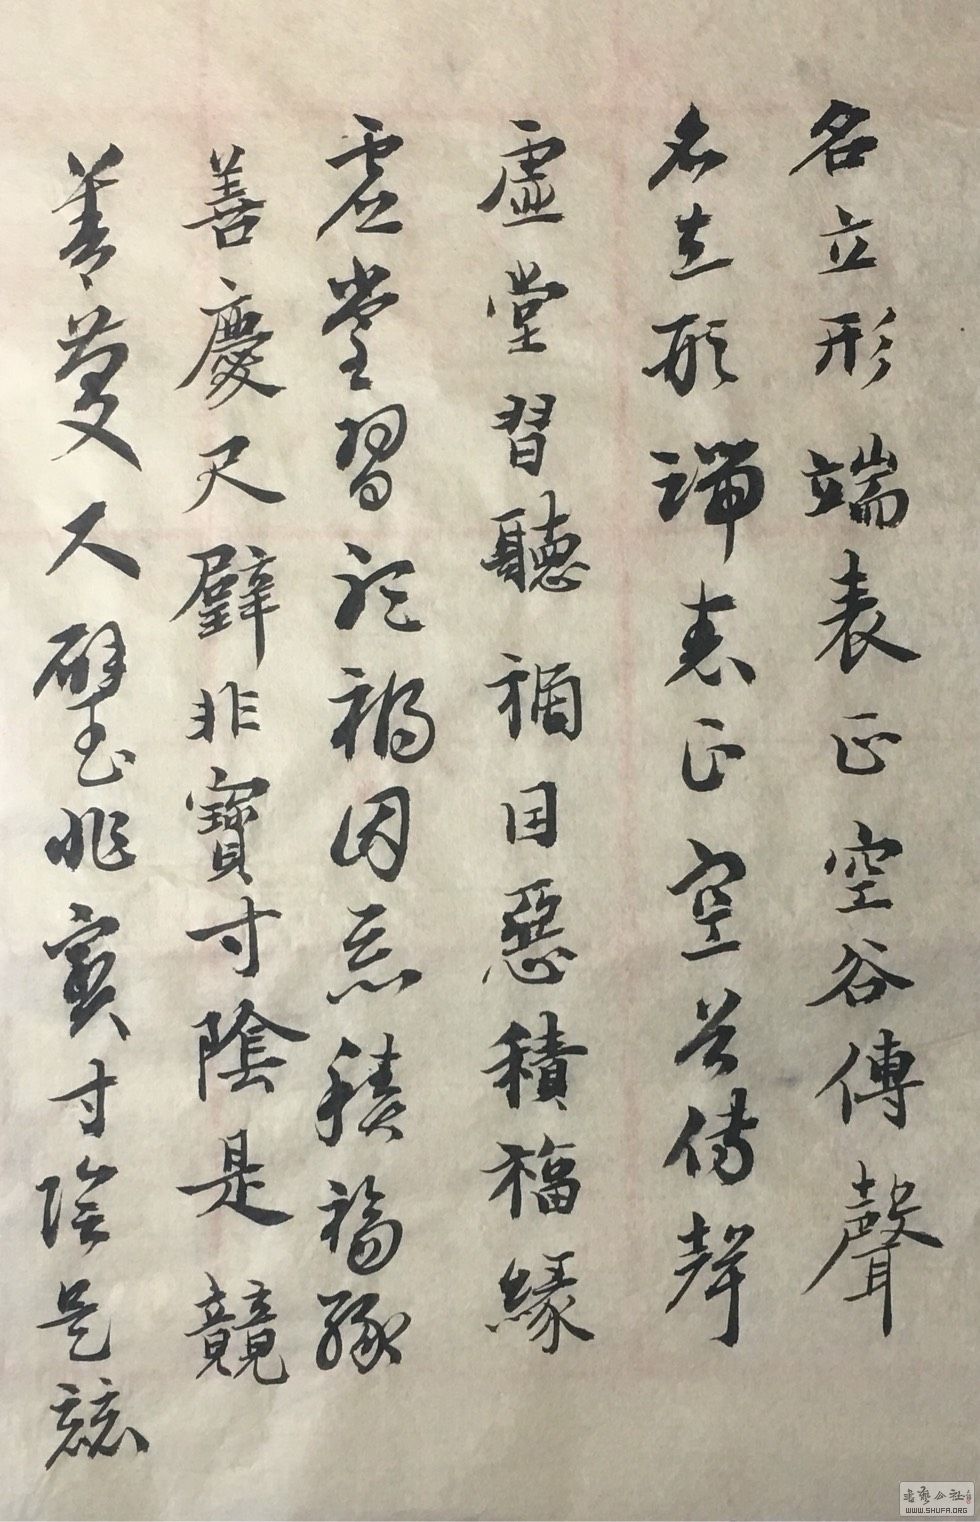 名立形端表正空谷傳聲
名立形端表正空谷傳聲
虛堂習聽禍因惡積福緣
虛堂習聽禍因惡積福緣
善慶尺璧非寶寸陰是競
善慶尺璧非寶寸陰是競
书艺公社
WWW.SHUFA.ORG